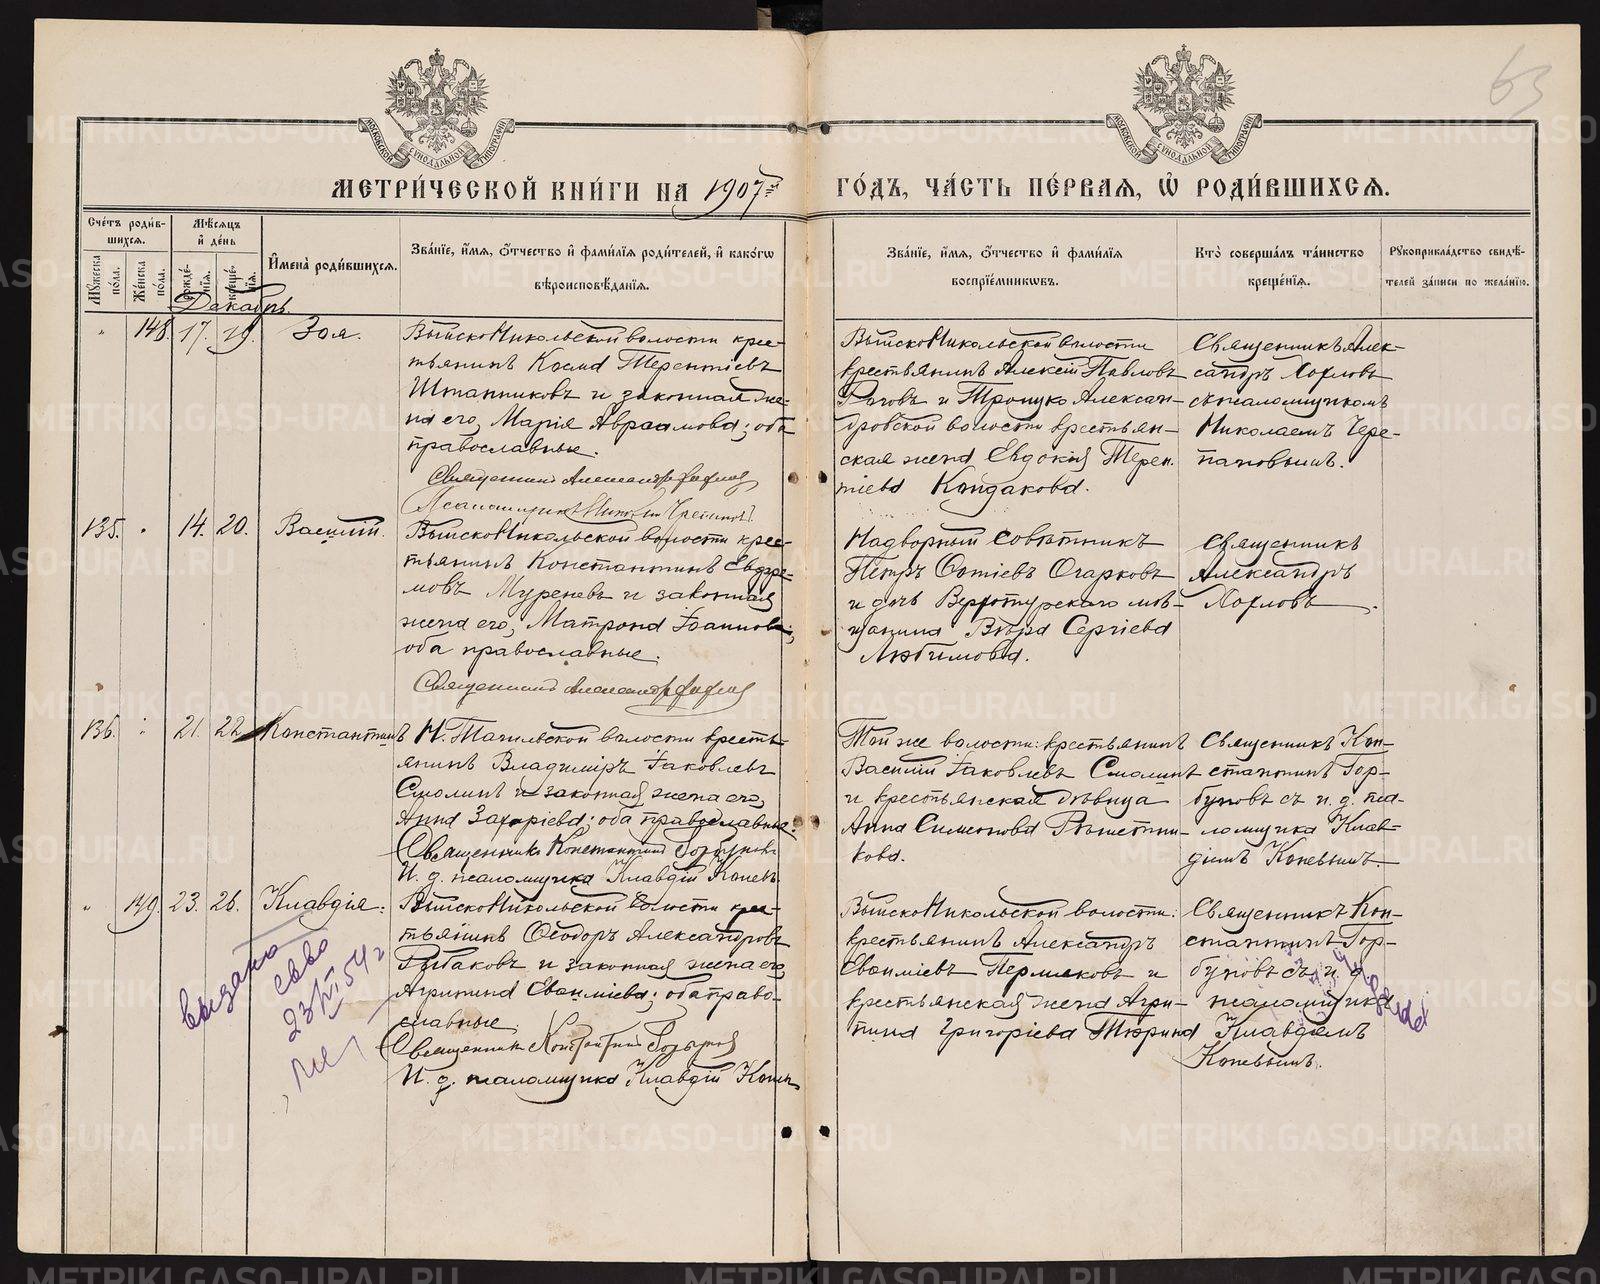 63
МОСКОВСКОЙ СУНОДАЛЬНОЙ ТИПОГРАФІИ
МОСКОВСКОЙ СУНОДАЛЬНОЙ ТИПОГРАФІИ
МЕТРИ́ЧЕСКОЙ КНИ́ГИ НА 1907й ГО́ДЪ, ЧА́СТЬ ПЕ́РВАЯ, Ѽ РОДИ́ВШИХСѦ.
Сче́тъ роди́в-
шихсѧ.
Мꙋ́жеска по́ла.
Же́нска по́ла.
Мѣ́сяцъ
и҆ де́нь
рожде́-
нїѧ.
креще́-
нїѧ.
И҆мена̀ роди́вшихсѧ.
Зва́нїе, и҆́мѧ, ѻ҆́тчество и҆ фами́лїѧ роди́телей, и҆ како́гѡ
вѣроисповѣ́данїѧ.
Зва́нїе, и҆́мѧ, ѻ҆́тчество и҆ фами́лїѧ
воспрїе́мниковъ.
Кто̀ соверша́лъ та́инство
креще́нїѧ.
Рꙋкоприкла́дство свидѣ́-
телей за́писи по жела́нїю.
Декабрь.
" 148. 17. 19. Зоя.
ВыйскоНикольской волости крес-
тьянинъ Косма Терентіевъ
Штанниковъ и законная же-
на его, Марія Авраамова; оба
православные.
Священникъ Александръ Хохловъ
Псаломщикъ Николай Черепановъ
ВыйскоНикольской волости
крестьянинъ Алексій Павловъ
Роговъ и Троицко Алексан-
дровской волости крестьян-
ская жена Евдокія Терен-
тіева Кондакова.
Священникъ Алек-
сандръ Хохловъ
съ псаломщикомъ
Николаемъ Чере-
пановымъ.
135. " 14. 20. Василій.
ВыйскоНикольской волости крес-
тьянинъ Константинъ Евдре-
мовъ Муреневъ и законная
жена его, Матрона Іоаннова;
оба православные.
Священникъ Александръ Хохловъ
Надворный Совѣтникъ
Петръ Фотіевъ Огарковъ
и дочь Верхотурскаго мѣ-
щанина Вѣра Сергіева
Любимова.
Священникъ
Александръ
Хохловъ.
136. " 21. 22. Константинъ
Н. Тагильской волости кресть-
янинъ Владиміръ Іаковлевъ
Смолинъ и законная жена его,
Анна Захаріева; оба православные.
Священникъ Константинъ Горбуновъ
И. д. псаломщика Клавдій Коневъ.
Той же волости: крестьянинъ
Василій Іаковлевъ Смолинъ
и крестьянская дѣвица
Анна Симеонова Рѣшетни-
кова.
Священникъ Кон-
стантинъ Гор-
буновъ съ и. д. пса-
ломщика Клав-
діемъ Коневымъ.
" 149. 23. 26. Клавдія.
ВыйскоНикольской волости крес-
тьянинъ Ѳеодоръ Александровъ
Рыбаковъ и законная жена его,
Агрипина Евѳиміева; оба право-
славные
Священникъ Константинъ Горбуновъ
И. д. псаломщика Клавдій Коневъ
ВыйскоНикольской волости:
крестьянинъ Александръ
Евѳиміевъ Пермяковъ и
крестьянская жена Агри-
пина Григоріева Тюрина
Священникъ Кон-
стантинъ Гор-
буновъ съ и. д.
псаломщика
Клавдіемъ
Коневымъ.
выдана
св-во
23/XI 54 г